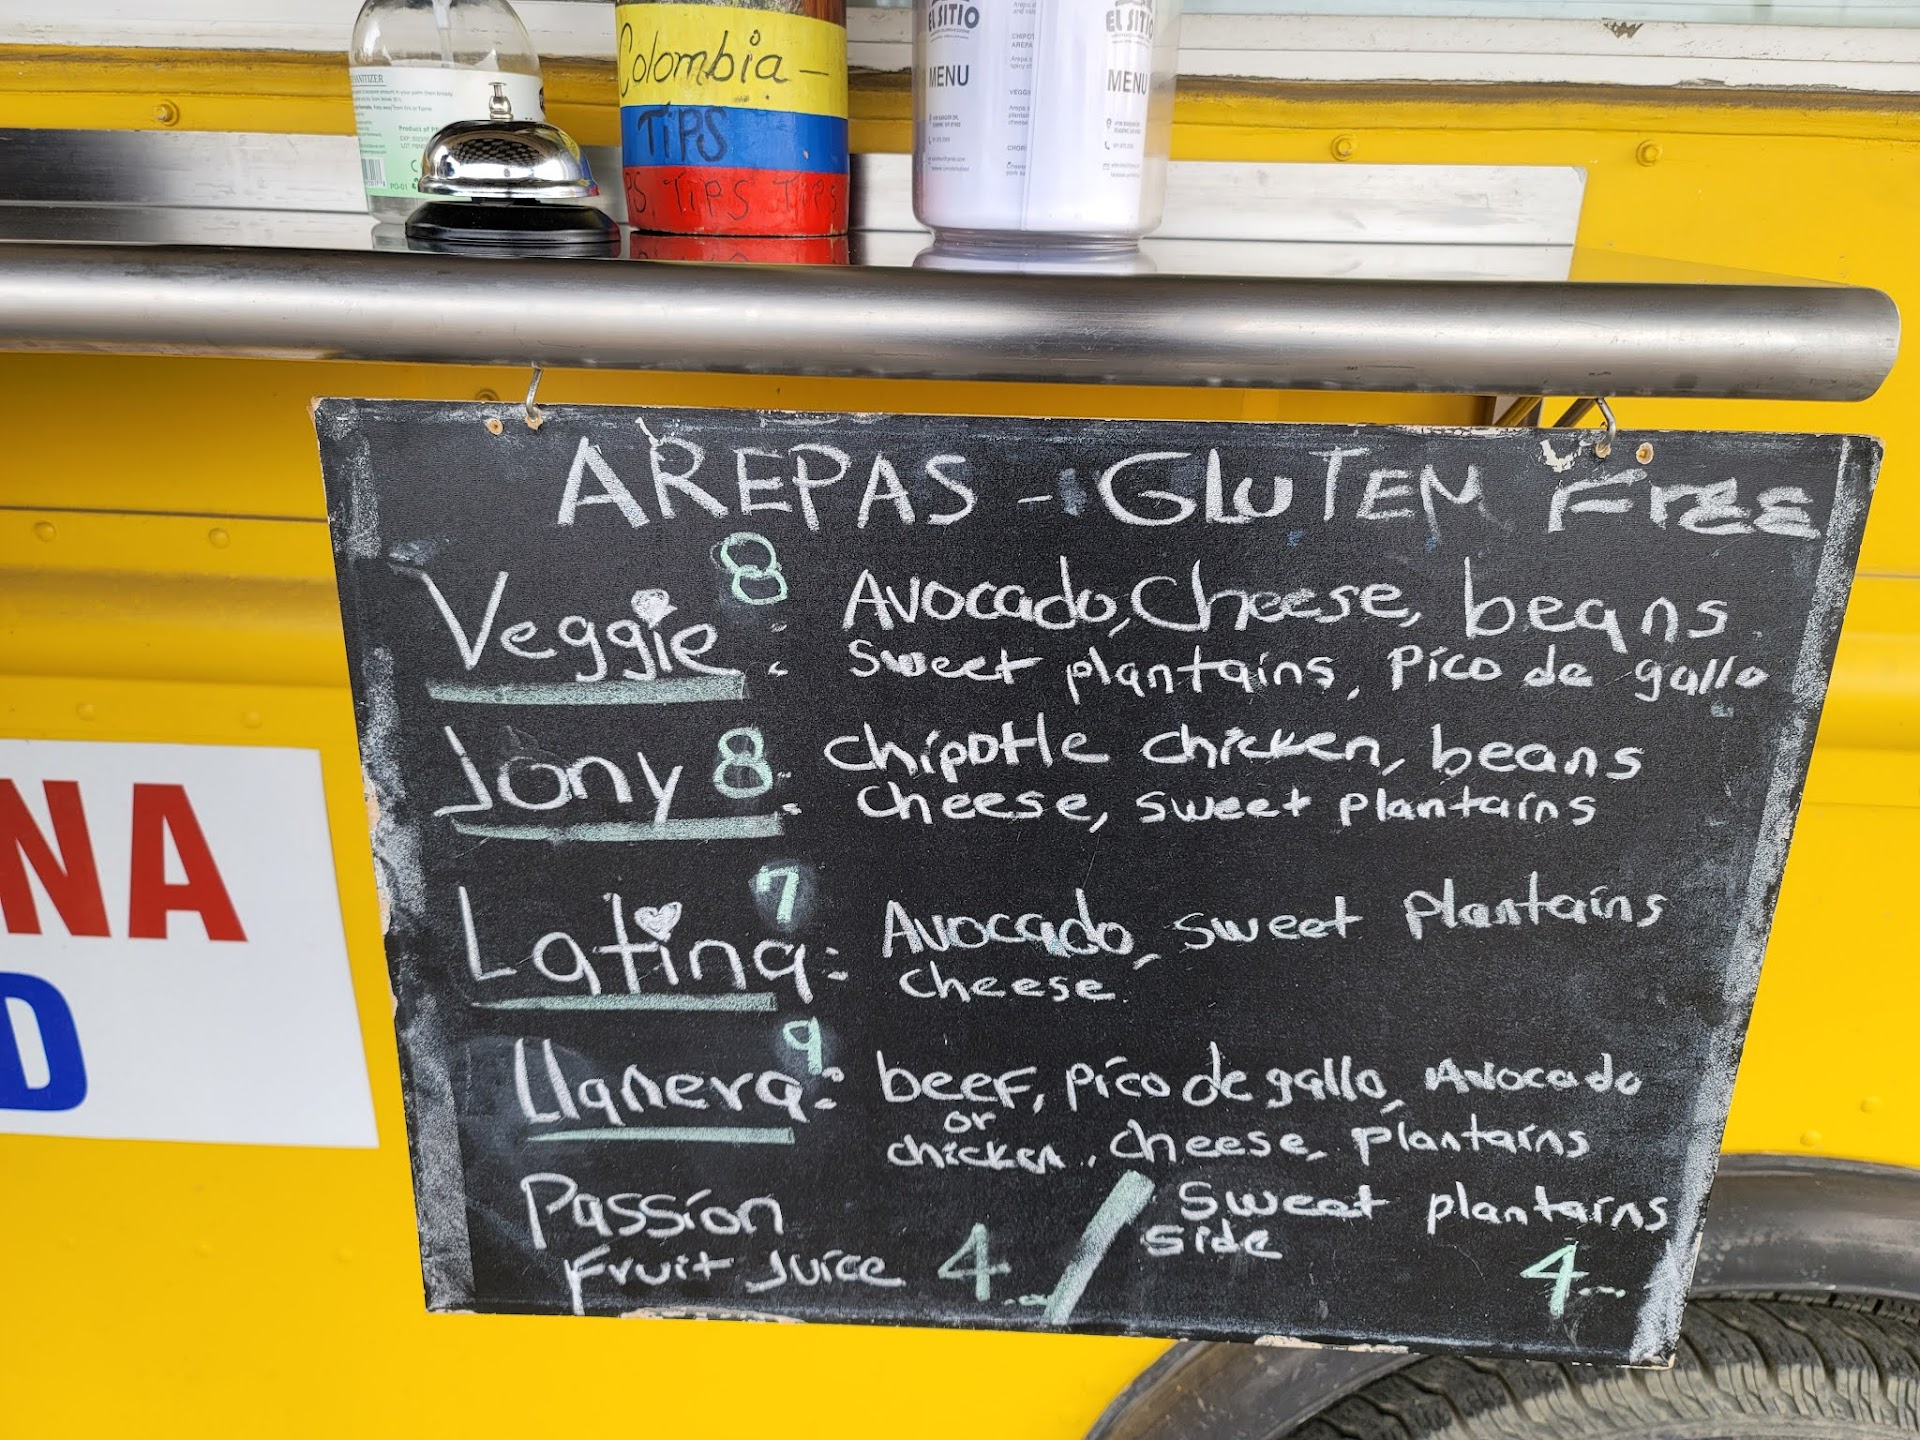 SANITIZER
Product of
PO-01
Colombia -
TIPS
PS, TIPS TIPS
EL SITIO
MENU
EL SITIO
MENU
NA
D
AREPAS - GLUTEN Free
Veggie 8 : Avocado, Cheese, beans
Sweet plantains, Pico de gallo
Jony 8 : Chipotle chicken, beans
cheese, sweet plantains
Latina 7 : Avocado, sweet plantains
cheese.
Llanera 9 : beef, pico de gallo, Avocado
or
chicken, cheese, plantains
Passion
Fruit Juice 4 / Sweet plantains
side 4